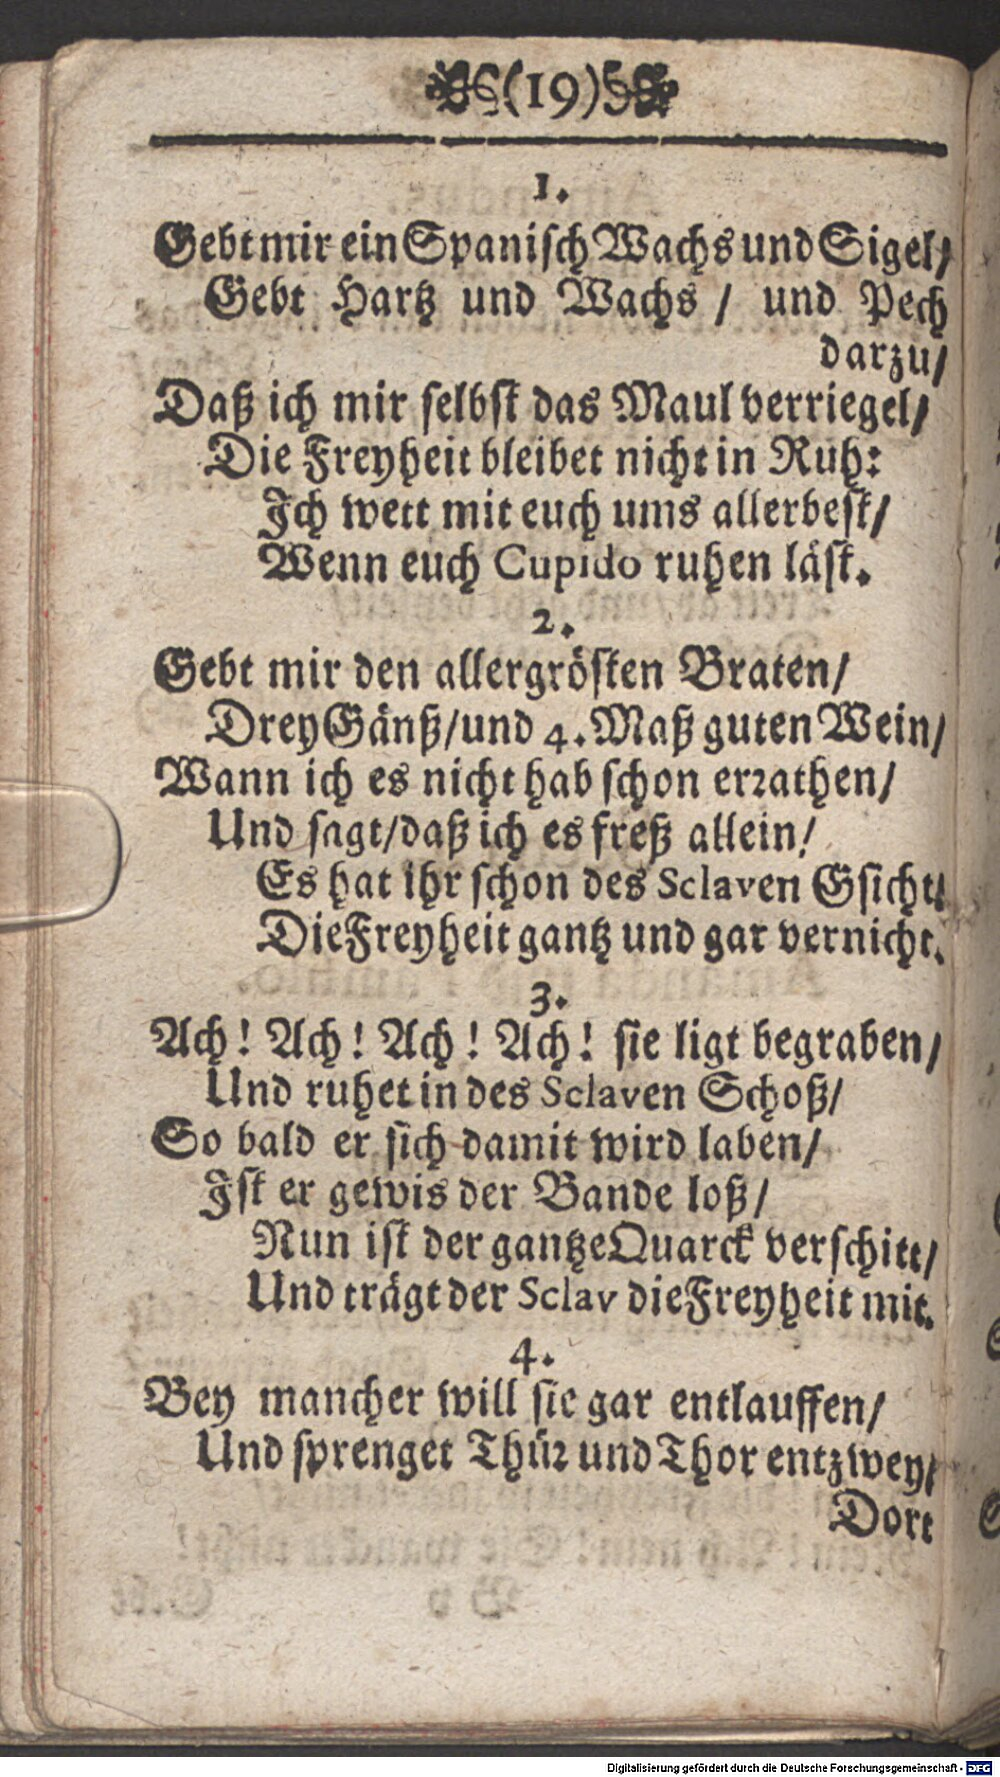 (19)
1.
Gebt mir ein Spanisch Wachs und Sigel/
Gebt Hartz und Wachs / und Pech
darzu/
Daß ich mir selbst das Maul verriegel/
Die Freyheit bleibet nicht in Ruh:
Ich wett mit euch ums allerbest/
Wenn euch Cupido ruhen läst.
2.
Gebt mir den allergrösten Braten/
Drey Gänß/und 4. Maß guten Wein/
Wann ich es nicht hab schon errathen/
Und sagt/daß ich es freß allein!
Es hat ihr schon des Sclaven Gsicht!
Die Freyheit gantz und gar vernicht.
3.
Ach! Ach! Ach! Ach! sie ligt begraben/
Und ruhet in des Sclaven Schoß/
So bald er sich damit wird laben/
Ist er gewis der Bande loß/
Nun ist der gantze Quarck verschitt/
Und trägt der Sclav die Freyheit mit.
4.
Bey mancher will sie gar entlauffen/
Und sprenget Thür und Thor entzwey/
Dort
Digitalisierung gefördert durch die Deutsche Forschungsgemeinschaft - DFG